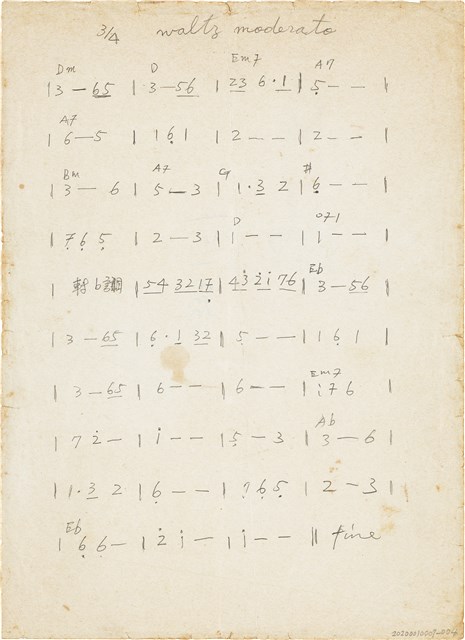 3/4 waltz moderato
Dm D Em7 A7
| 3 — 65 | 3 — 56 | 23 6·1 | 5 - - |
A7
| 6 — 5 | 1 6 1 | 2 — — | 2 — — |
Bm A7 G #
| 3 — 6 | 5 — 3 | 1·3 2 | 6 — — |
D
| 7 6 5 | 2 — 3 | 1 — — | 1 — — |
Eb
| 轉b調 | 54 3217 | 43 2i 76 | 3 — 56 |
| 3 — 65 | 6·1 32 | 5 — — | 1 6 1 |
Em7
| 3 — 65 | 6 — — | 6 — — | i 7 6 |
Ab
| 7 2 — | i — — | 5 — 3 | 3 — 6 |
| 1·3 2 | 6 — — | 7 6 5 | 2 — 3 |
Eb
| 6 6 — | 2 i — | i — — || fine